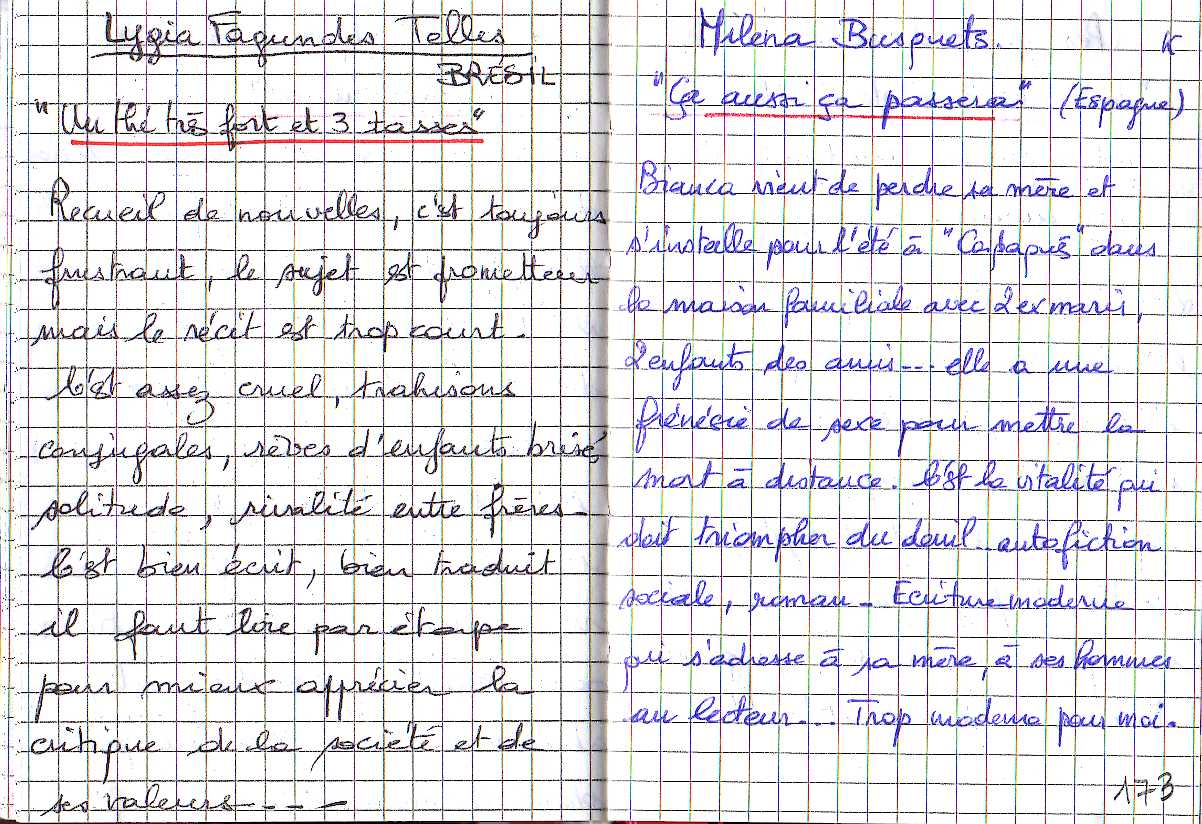 Lygia Fagundes Telles
BRÉSIL
"Un thé très fort et 3 tasses"
Recueil de nouvelles, c'est toujours
frustrant, le sujet est prometteur
mais le récit est trop court.
C'est assez cruel, trahisons
conjugales, rêves d'enfants brisés
solitude, rivalité entre frères.
C'est bien écrit, bien traduit
il faut lire par étape
pour mieux apprécier la
critique de la société et de
ses valeurs ----
Milena Busquets.
"Ça aussi ça passera" (Espagne)
Bianca vient de perdre sa mère et
s'installe pour l'été à "Capaquès" dans
la maison familiale avec 2 ex maris,
2 enfants des amis... elle a une
frénésie de sexe pour mettre la
mort à distance. C'est la vitalité qui
doit triompher du deuil.. autofiction
sociale, roman - Ecriture moderne
qui s'adresse à sa mère, à ses hommes
au lecteur... Trop moderne pour moi.
173